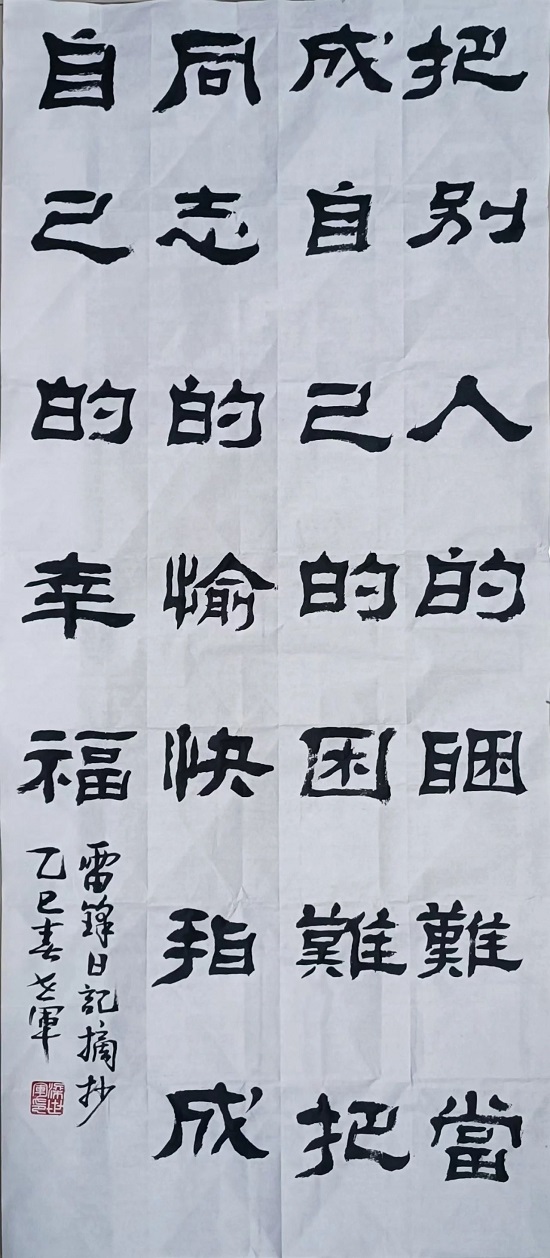 把别人的睏難當
成自己的困難把
同志的愉快看成
自己的幸福
雷鋒日記摘抄
乙巳春世軍